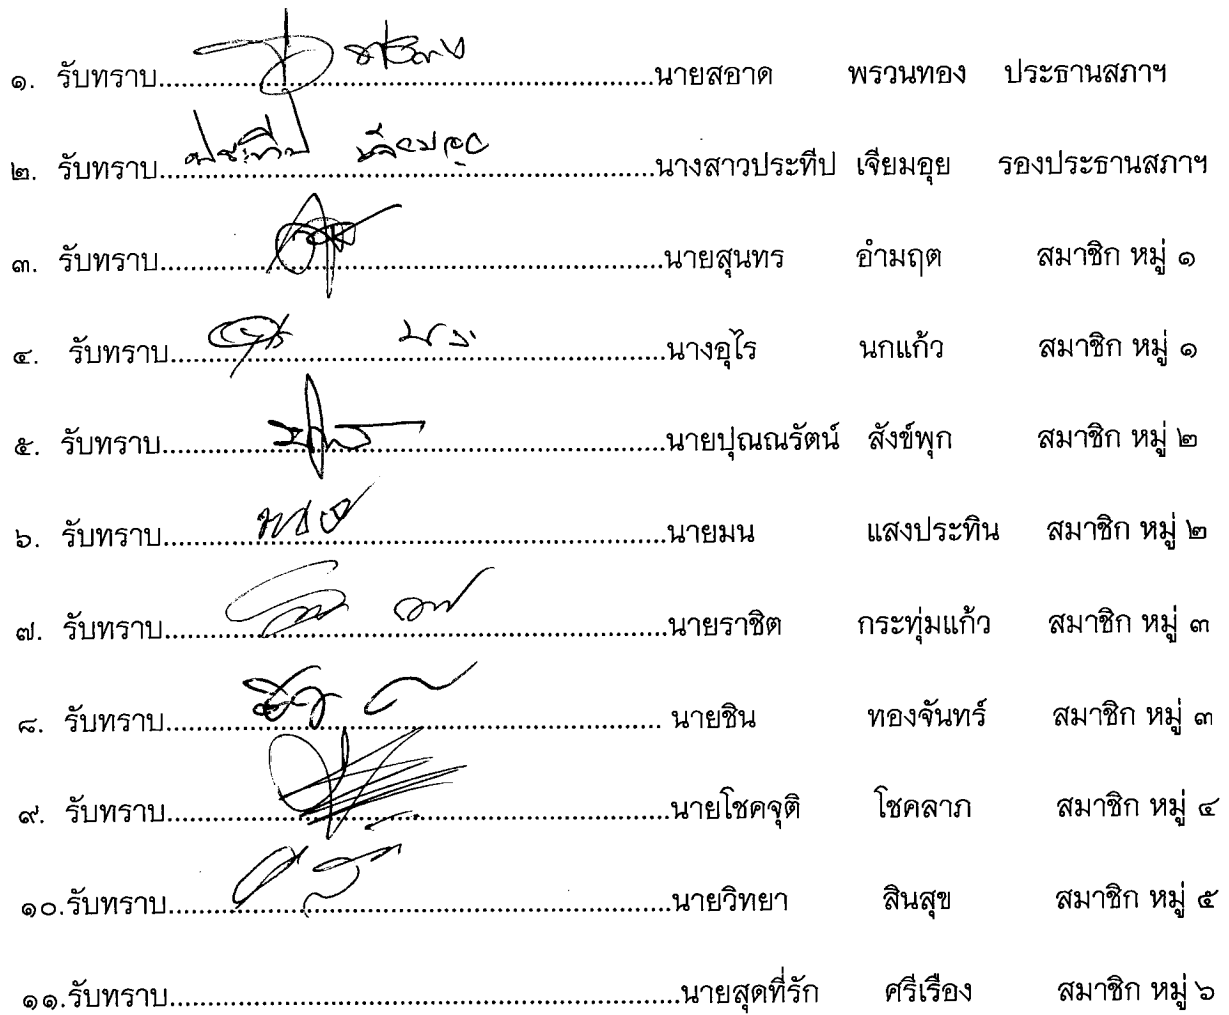 ๑. รับทราบ..............................นายสอาด พรวนทอง ประธานสภาฯ
๒. รับทราบ..............................นางสาวประทีป เจียมอุย รองประธานสภาฯ
๓. รับทราบ..............................นายสุนทร อำมฤต สมาชิก หมู่ ๑
๔. รับทราบ..............................นางอุไร นกแก้ว สมาชิก หมู่ ๑
๕. รับทราบ..............................นายปุณณรัตน์ สังข์พุก สมาชิก หมู่ ๒
๖. รับทราบ..............................นายมน แสงประทิน สมาชิก หมู่ ๒
๗. รับทราบ..............................นายราชิต กระทุ่มแก้ว สมาชิก หมู่ ๓
๘. รับทราบ.............................. นายชิน ทองจันทร์ สมาชิก หมู่ ๓
๙. รับทราบ..............................นายโชคจุติ โชคลาภ สมาชิก หมู่ ๔
๑๐.รับทราบ..............................นายวิทยา สินสุข สมาชิก หมู่ ๕
๑๑.รับทราบ..............................นายสุดที่รัก ศรีเรือง สมาชิก หมู่ ๖